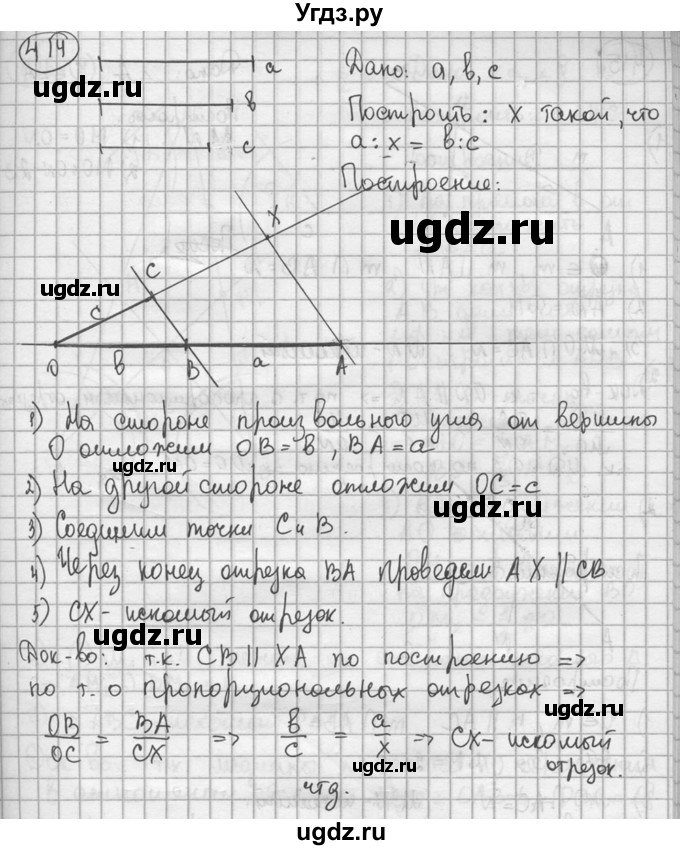 Угдз.ру
414
a
Дано: a, b, c
b
Построить: X такой, что
c
a : x = b : c
Построение:
X
C
c
O b B a A
1) На стороне произвольного угла от вершины
O отложим OB = b, BA = a
2) На другой стороне отложим OC = c
3) Соединим точки C и B.
4) Через конец отрезка BA проведем AX || CB
5) CX - искомый отрезок.
Док-во: т.к. CB || XA по построению =>
по т. о пропорциональных отрезках =>
OB/OC = BA/CX => b/c = a/x => CX - искомый
отрезок.
чтд.
udgz.ru
ugdz.ru
ugdz.ru
ugdz.ru
ugdz.ru
ugdz.ru
ugdz.ru
ugdz.ru
ugdz.ru
ugdz.ru